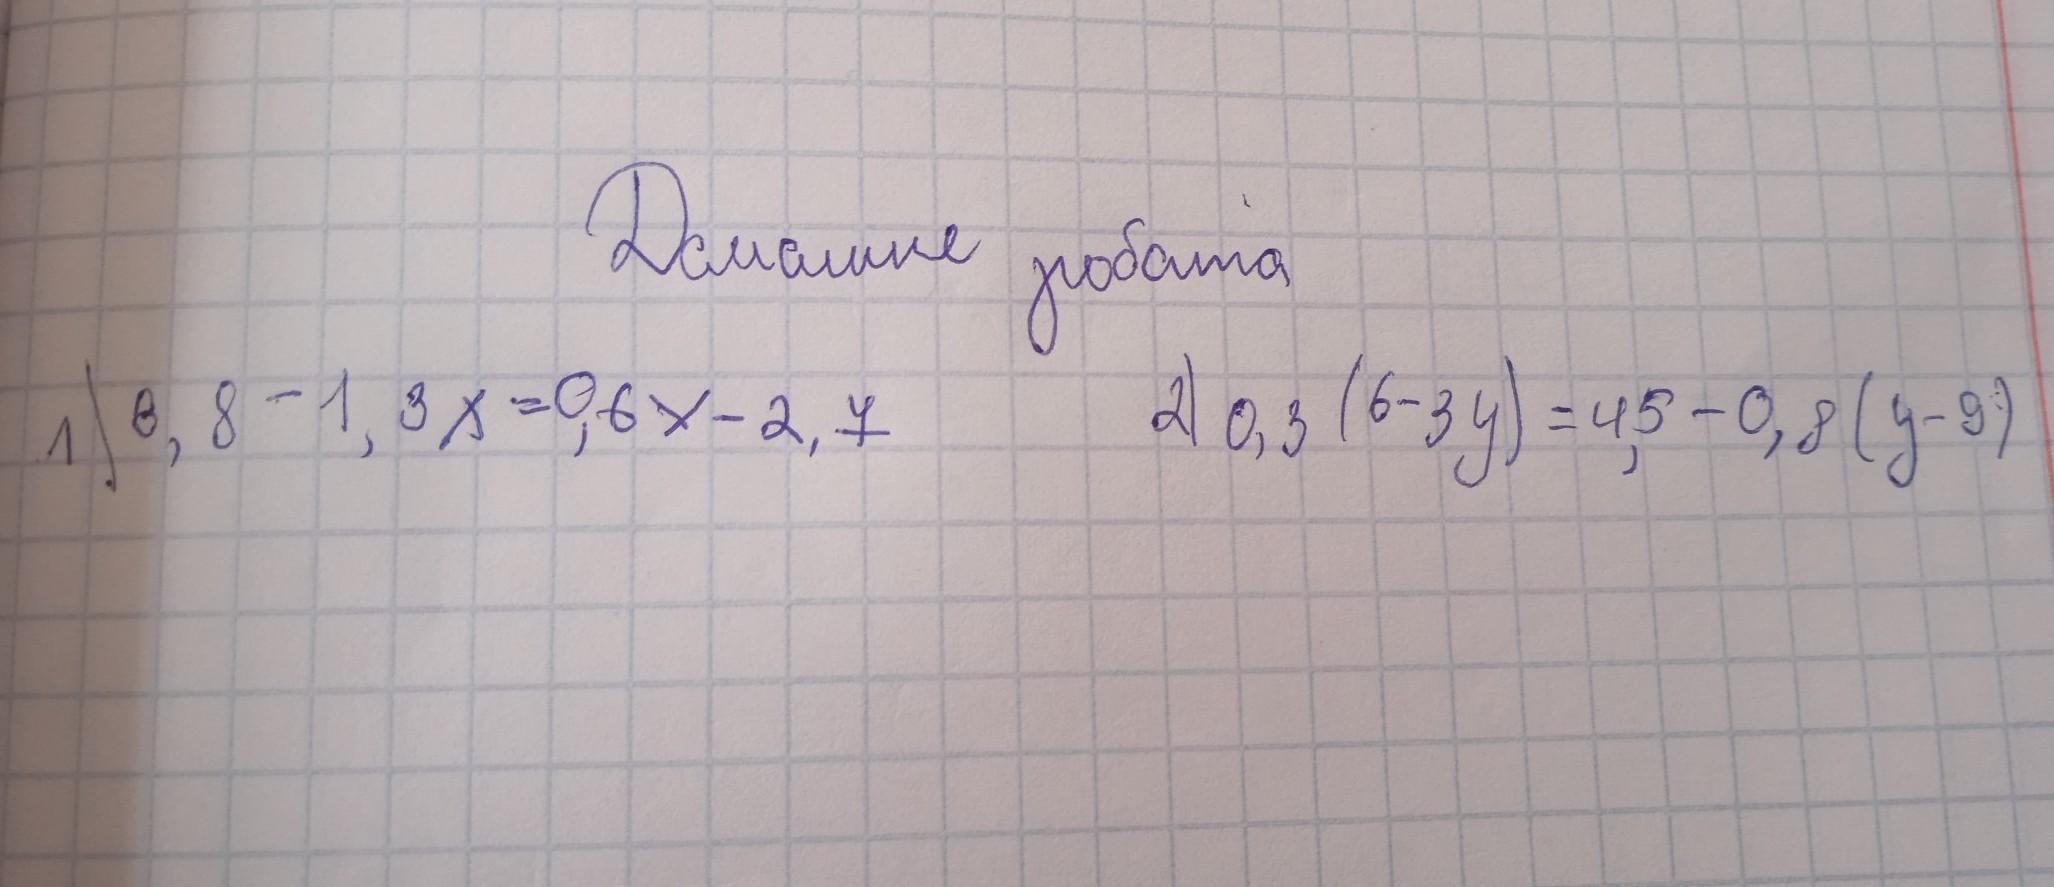 Домашнє робота
1) 8,8-1,3x=0,6x-2,7 2) 0,3(6-3y)=4,5-0,8(y-9)